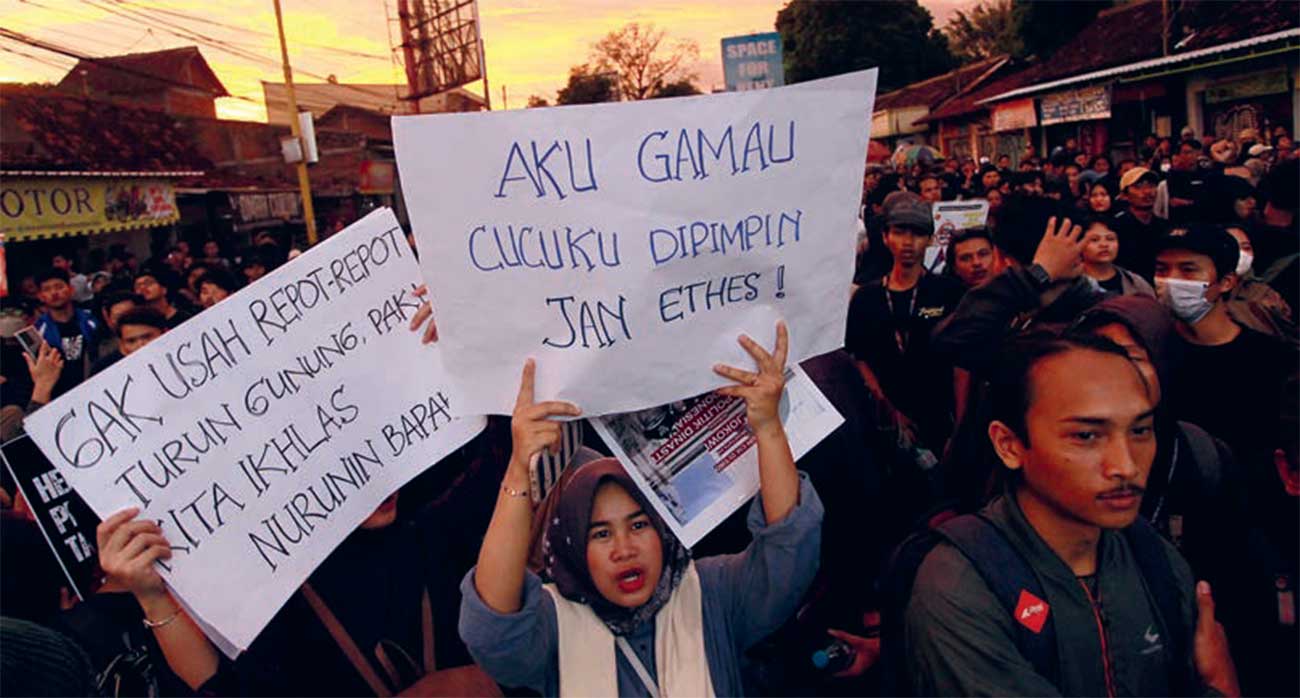 SPACE
FOR
OTOR
AKU GAMAU
CUCUKU DIPIMPIN
JAN ETHES !
GAK USAH REPOT-REPOT
TURUN GUNUNG, PAK
KITA IKHLAS
NURUNIN BAPAK
POLITIK DINAST
JOKOWI